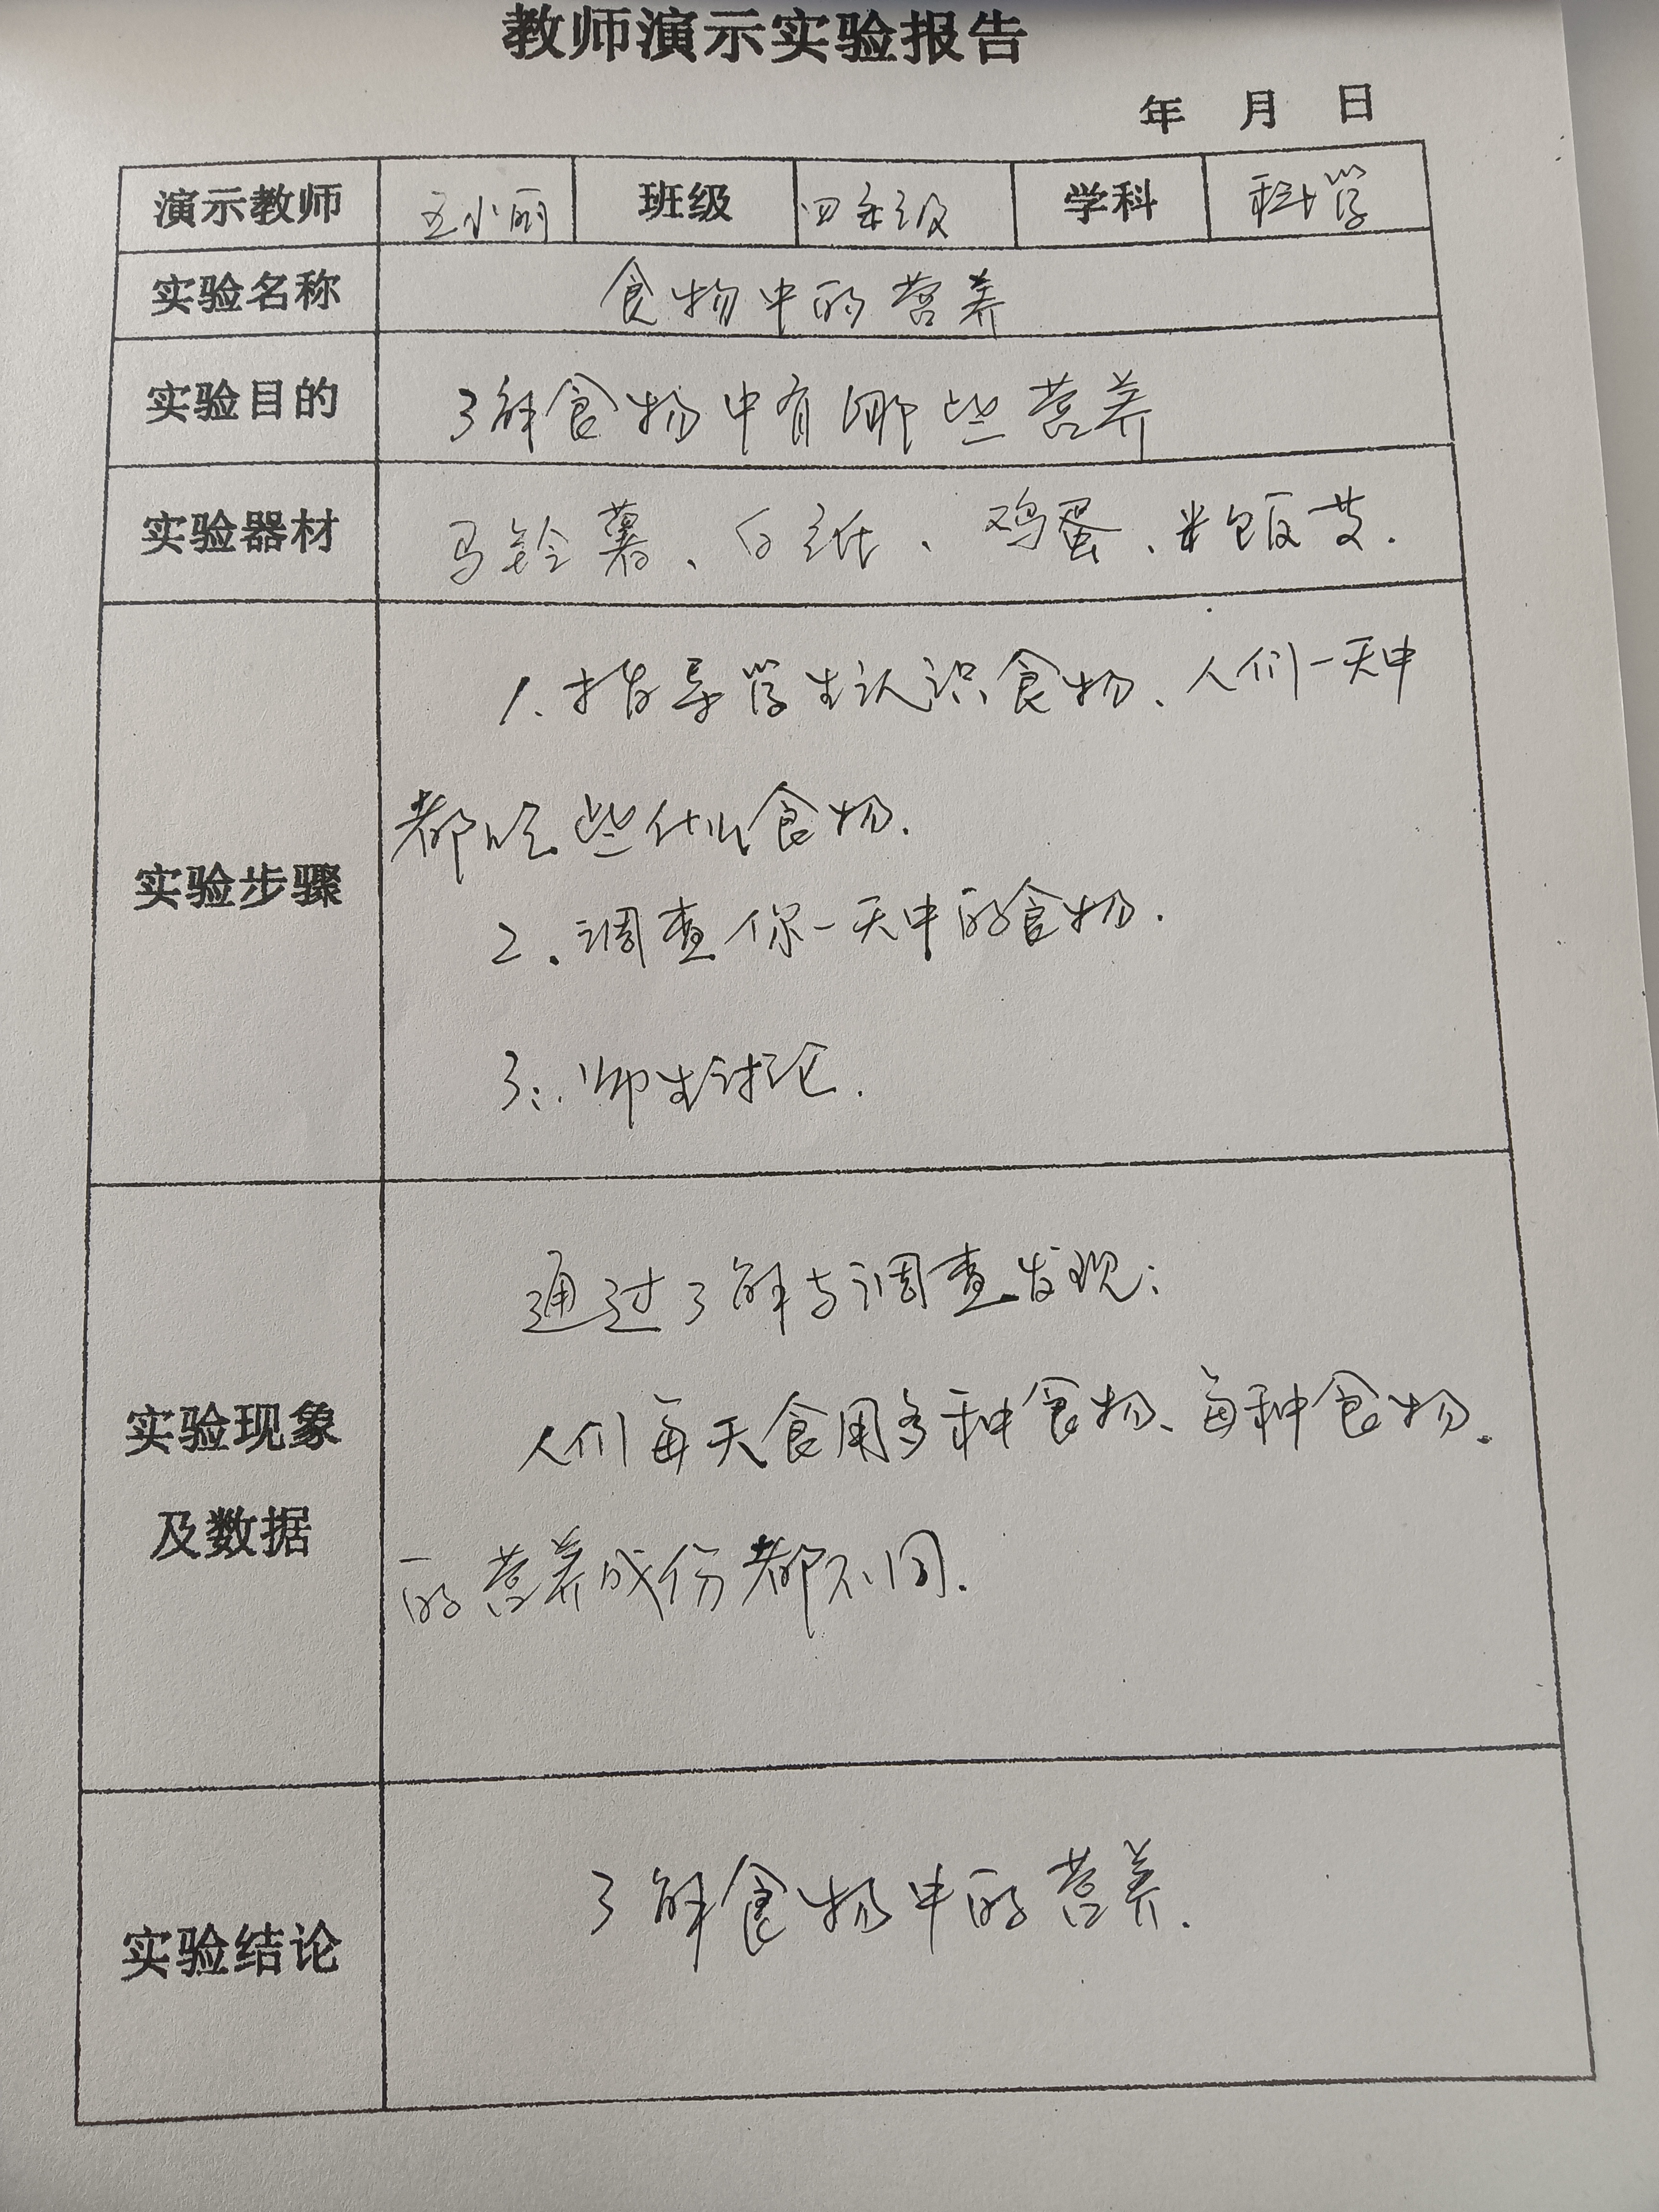 教师演示实验报告
年 月 日
演示教师 王小丽 班级 四年级 学科 科学
实验名称 食物中的营养
实验目的 了解食物中有哪些营养
实验器材 马铃薯、白纸、鸡蛋、米饭
实验步骤
1、指导学生认识食物、人们一天中
都吃些什么食物.
2.调查你一天中的食物.
3、师生讨论.
实验现象
及数据
通过了解与调查发现:
人们每天食用多种食物、每种食物.
的营养成份都不同.
实验结论
了解食物中的营养.